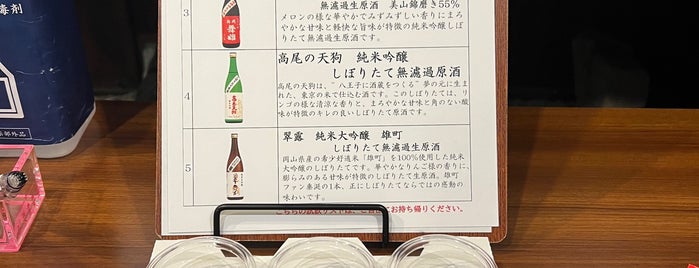 毒剤
3
無濾過生原酒 美山錦磨き55%
メロンの様な華やかでみずみずしい香りにまろ
やかな甘味と軽快な旨味が特徴の純米吟醸しぼ
りたて無濾過生原酒です。
4
高尾の天狗 純米吟醸
しぼりたて無濾過原酒
高尾の天狗は、"八王子に酒蔵をつくる"夢の元に生ま
れた、東京の米で仕込む酒です。このしぼりたては、リ
ンゴの様な清涼な香りと、まろやかな甘味と角のない酸
味が特徴のキレの良いしぼりたて原酒です。
5
翠露 純米大吟醸 雄町
しぼりたて無濾過生原酒
岡山県産の希少好適米「雄町」を100%使用した純米
大吟醸のしぼりたてです。華やかなりんご様の香りに、
膨らみのある甘味が特徴のしぼりたて生原酒です。雄町
ファン垂涎の1本、正にしぼりたてならではの感動の
味わいです。
こちらの試飲リストは、ご自由にお持ち帰りください。
医薬部外品